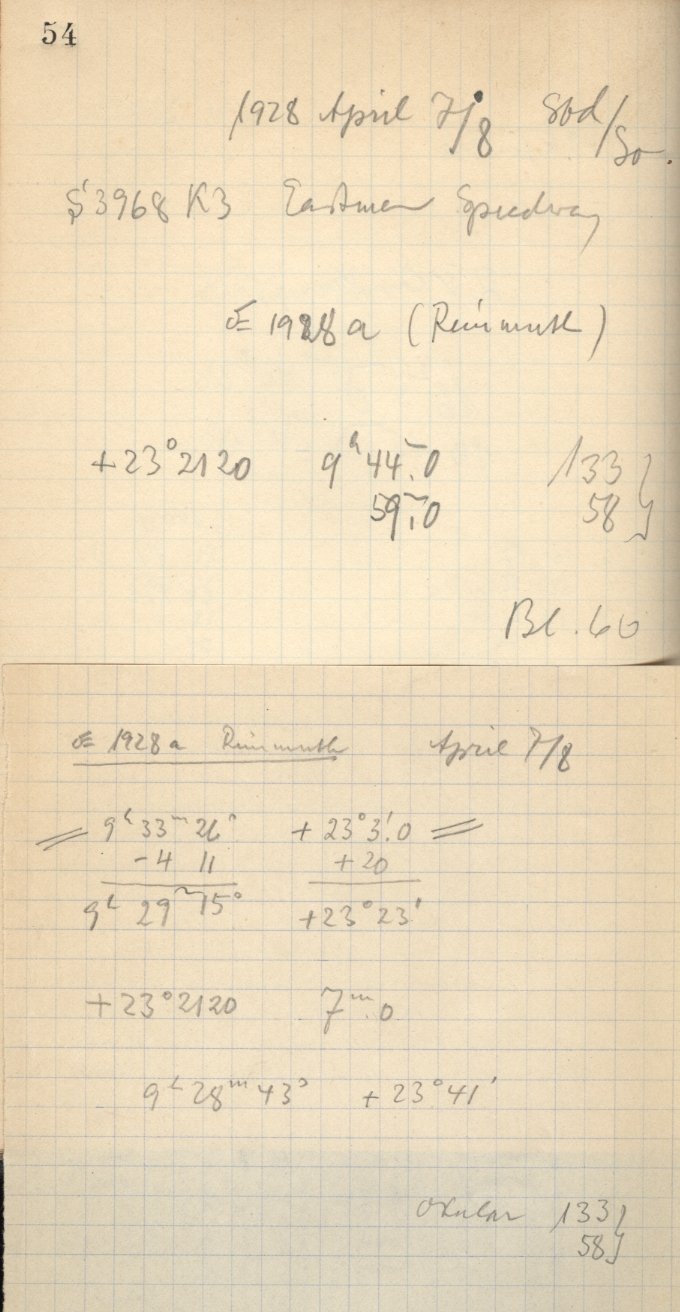 54
1928 April 7/8
3968 K3 Eastman Speedway
1928 a (Reinmuth)
+23°2120 9ʰ44ᵐ.0 133
59ᵐ.0 58
Bl. 60
1928 a Reinmuth April 7/8
9ʰ 33ᵐ 26ˢ +23°3'.0
-4 11 +20
9ʰ 29ᵐ 15ˢ +23°23'
+23°2120 7ᵐ.0
9ʰ 28ᵐ 43ˢ +23°41'
Okular 133
58